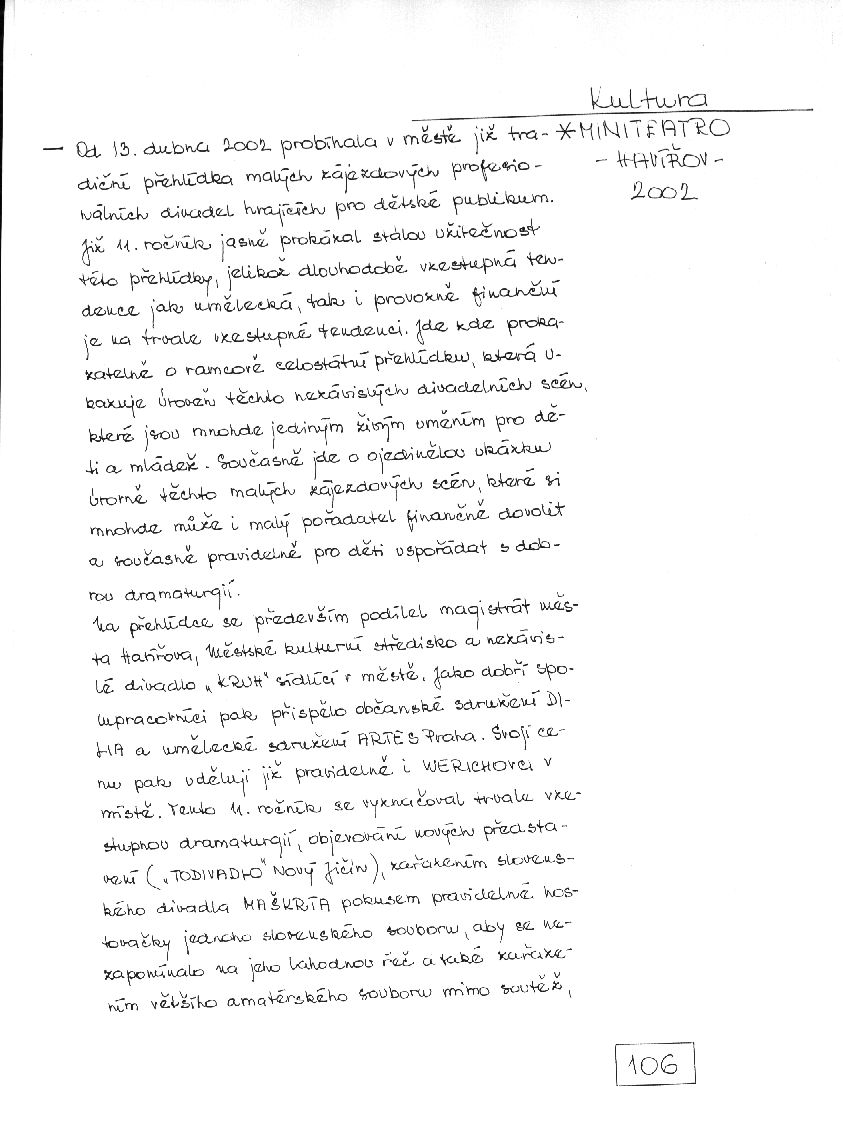 Kultura
— Od 13. dubna 2002 probíhala v městě již tra-
* MINITEATRO
- HAVÍŘOV -
2002
diční přehlídka malých zájezdových profesio-
nálních divadel hrajících pro dětské publikum.
Již 11. ročník jasně prokázal stálou užitečnost
této přehlídky, jelikož dlouhodobě vzestupná ten-
dence jak umělecká, tak i provozně finanční
je na trvale vzestupné tendenci. Jde zde proka-
zatelně o ramcově celostátní přehlídku, která u-
kazuje úroveň těchto nezávislých divadelních scén,
které jsou mnohde jediným živým uměním pro dě-
ti a mládež. Současně jde o ojedinělou ukázku
úrovně těchto malých zájezdových scén, které si
mnohde může i malý pořadatel finančně dovolit
a současně pravidelně pro děti uspořádat s dob-
rou dramaturgií.
Na přehlídce se především podílel magistrát měs-
ta Havířova, Městské kulturní středisko a nezávis-
lé divadlo „KRUH" sídlící v městě. Jako dobří spo-
lupracovníci pak přispělo občanské sdružení DI-
HA a umělecké sdružení ARTES Praha. Svoji ce-
nu pak udělují již pravidelně i WERICHOVCI v
místě. Tento 11. ročník se vyznačoval trvale vze-
stupnou dramaturgií, objevování nových předsta-
vení („TODIVADLO" Nový Jičín), zařazením slovens-
kého divadla MAŠKRTA pokusem pravidelné hos-
tovačky jednoho slovenského souboru, aby se ne-
zapomínalo na jeho lahodnou řeč a také zařaze-
ním většího amatérského souboru mimo soutěž,
106